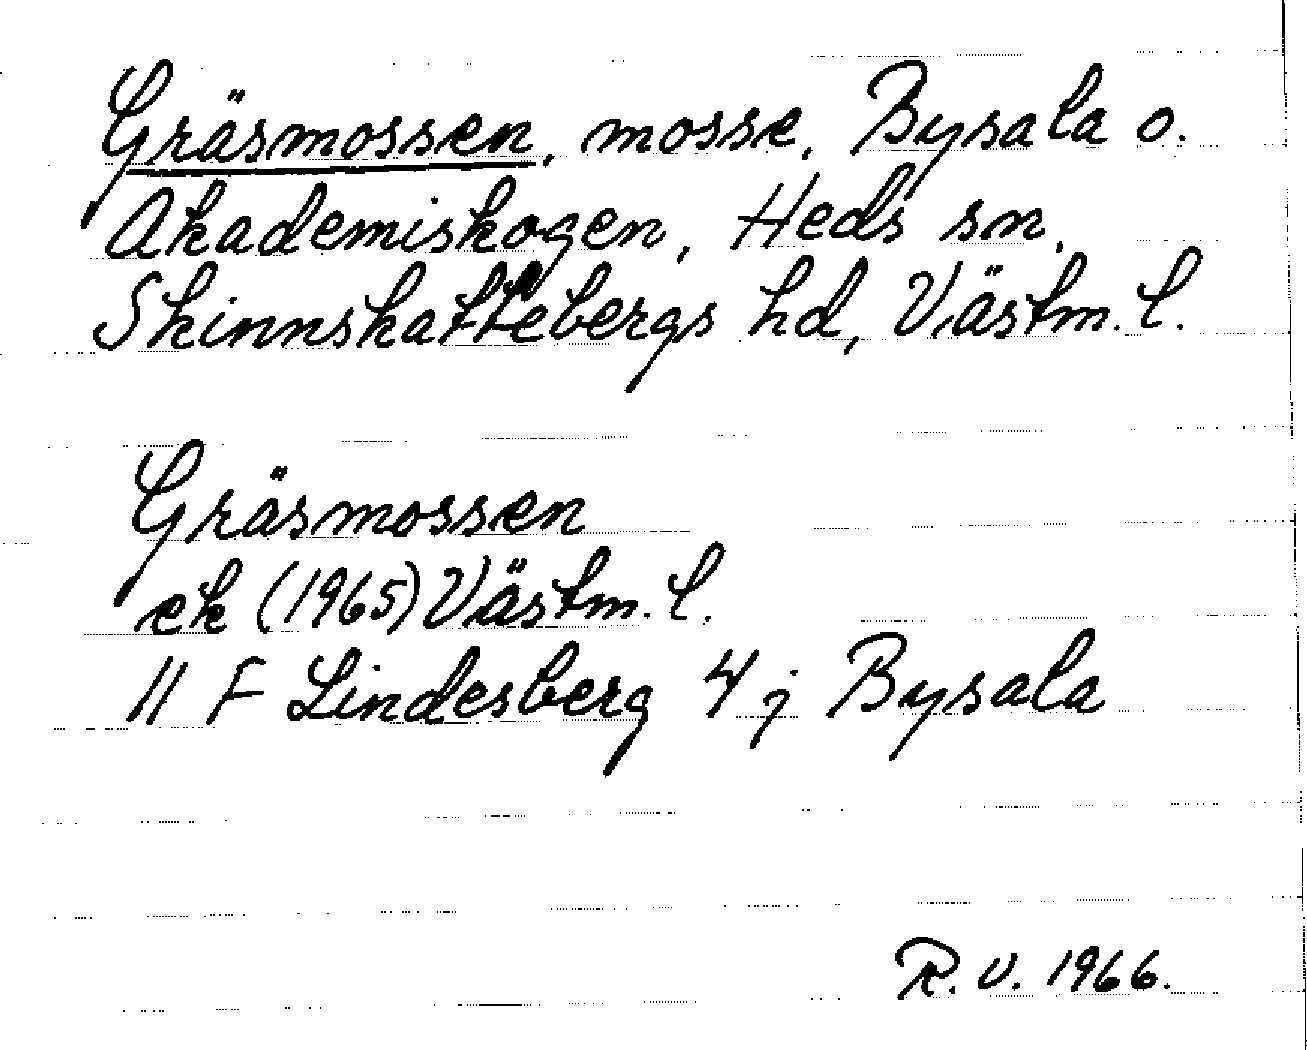 Gräsmossen, mosse, Bysala o.
Akademiskogen, Heds sn,
Skinnskattebergs hd, Västm. l.
Gräsmossen
ek (1965) Västm. l.
11 F Lindesberg 4 j Bysala
R. V. 1966.